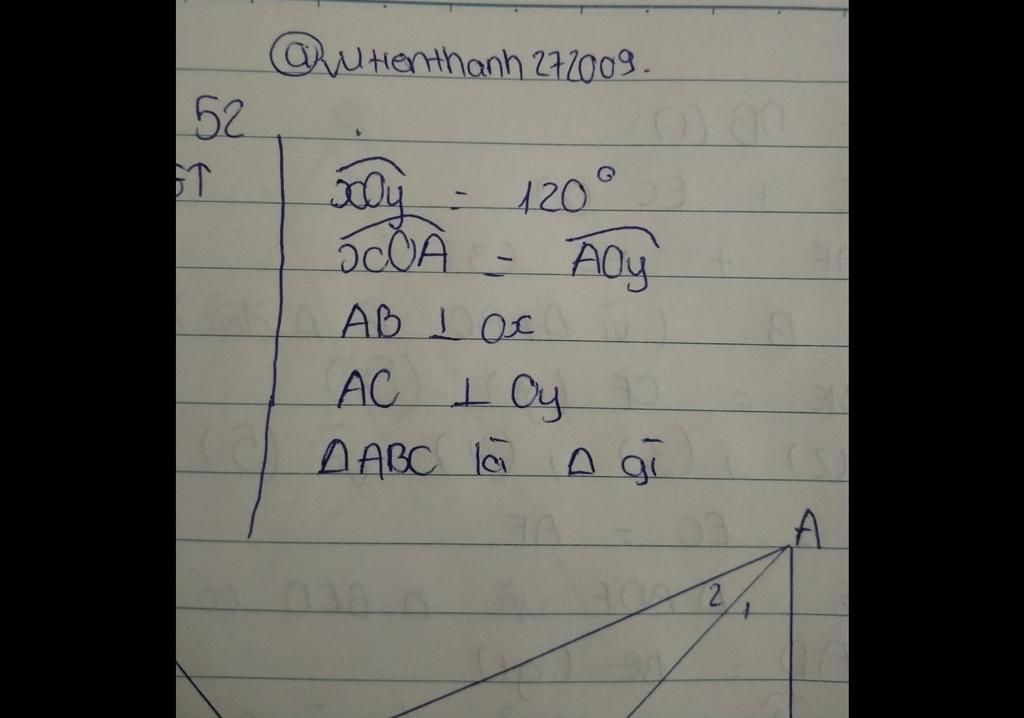 @vutienthanh272009.
52
GT
xOy = 120°
xOA = AOy
AB ⊥ Ox
AC ⊥ Oy
ΔABC là Δ gì
A
2 1